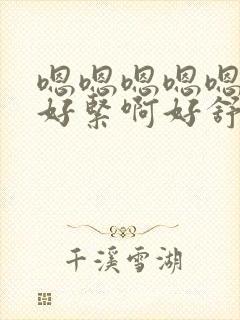 嗯嗯嗯嗯嗯
好紧啊好舒
千溪雪湖